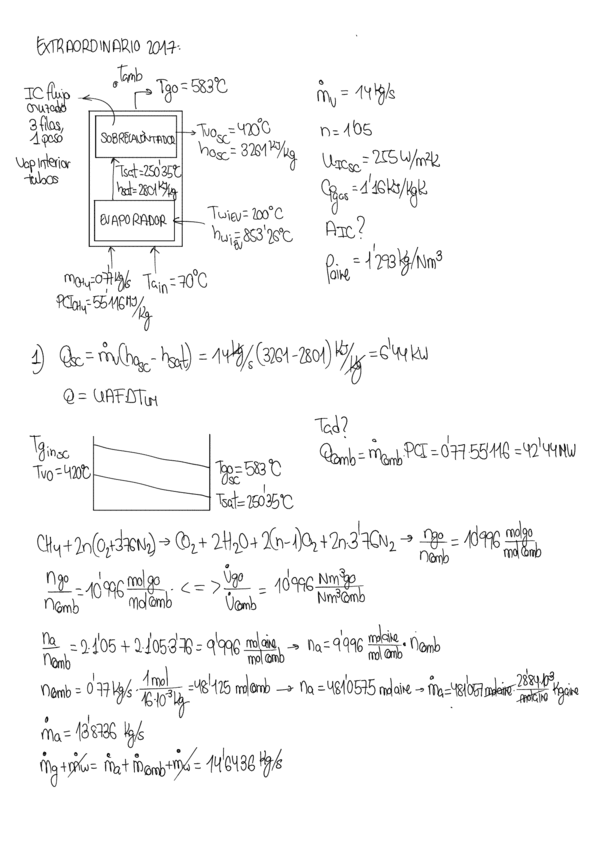 EXTRAORDINARIO 2017:
Tamb
Tgo = 583°C
IC flujo
cruzado
3 filas,
1 paso
Vap interior
tubos
SOBRECALENTADOR
Tvosc = 420°C
hosc = 3261 KJ/kg
Tsat = 250'35°C
hsat = 2801 KJ/kg
EVAPORADOR
TwiEV = 200°C
hwiEV = 853'26°C
mCH4 = 0'77 kg/s
PCICH4 = 55'116 MJ/kg
Tain = 70°C
ṁv = 14 kg/s
n = 1'05
UICsc = 255 W/m²K
Cpgas = 1'16 KJ/kgK
AIC?
ρaire = 1'293 kg/Nm³
1) Qsc = ṁv(hosc - hsat) = 14 kg/s (3261 - 2801) KJ/kg = 6'44 KW
Q = UAFDTLM
Tad?
Qcomb = ṁcomb·PCI = 0'77·55'116 = 42'44 MW
Tginsc
Tvo = 420°C
Tgosc = 583°C
Tsat = 250'35°C
CH4 + 2n(O2 + 3'76N2) → CO2 + 2H2O + 2(n-1)O2 + 2n·3'76N2 → ngo/ncomb = 10'996 molgo/molcomb
ngo/ncomb = 10'996 molgo/molcomb · <=> V̇go/V̇comb = 10'996 Nm³go/Nm³comb
na/ncomb = 2·1'05 + 2·1'05·3'76 = 9'996 molaire/molcomb → na = 9'996 molaire/molcomb · ṅcomb
ncomb = 0'77 kg/s · 1mol/16·10⁻³kg = 48'125 molcomb → na = 481'0575 molaire → ṁa = 481'057 molaire · 28'84·10⁻³/molaire kgaire
ṁa = 13'8736 kg/s
ṁg + ṁw = ṁa + ṁcomb + ṁw = 14'6436 kg/s